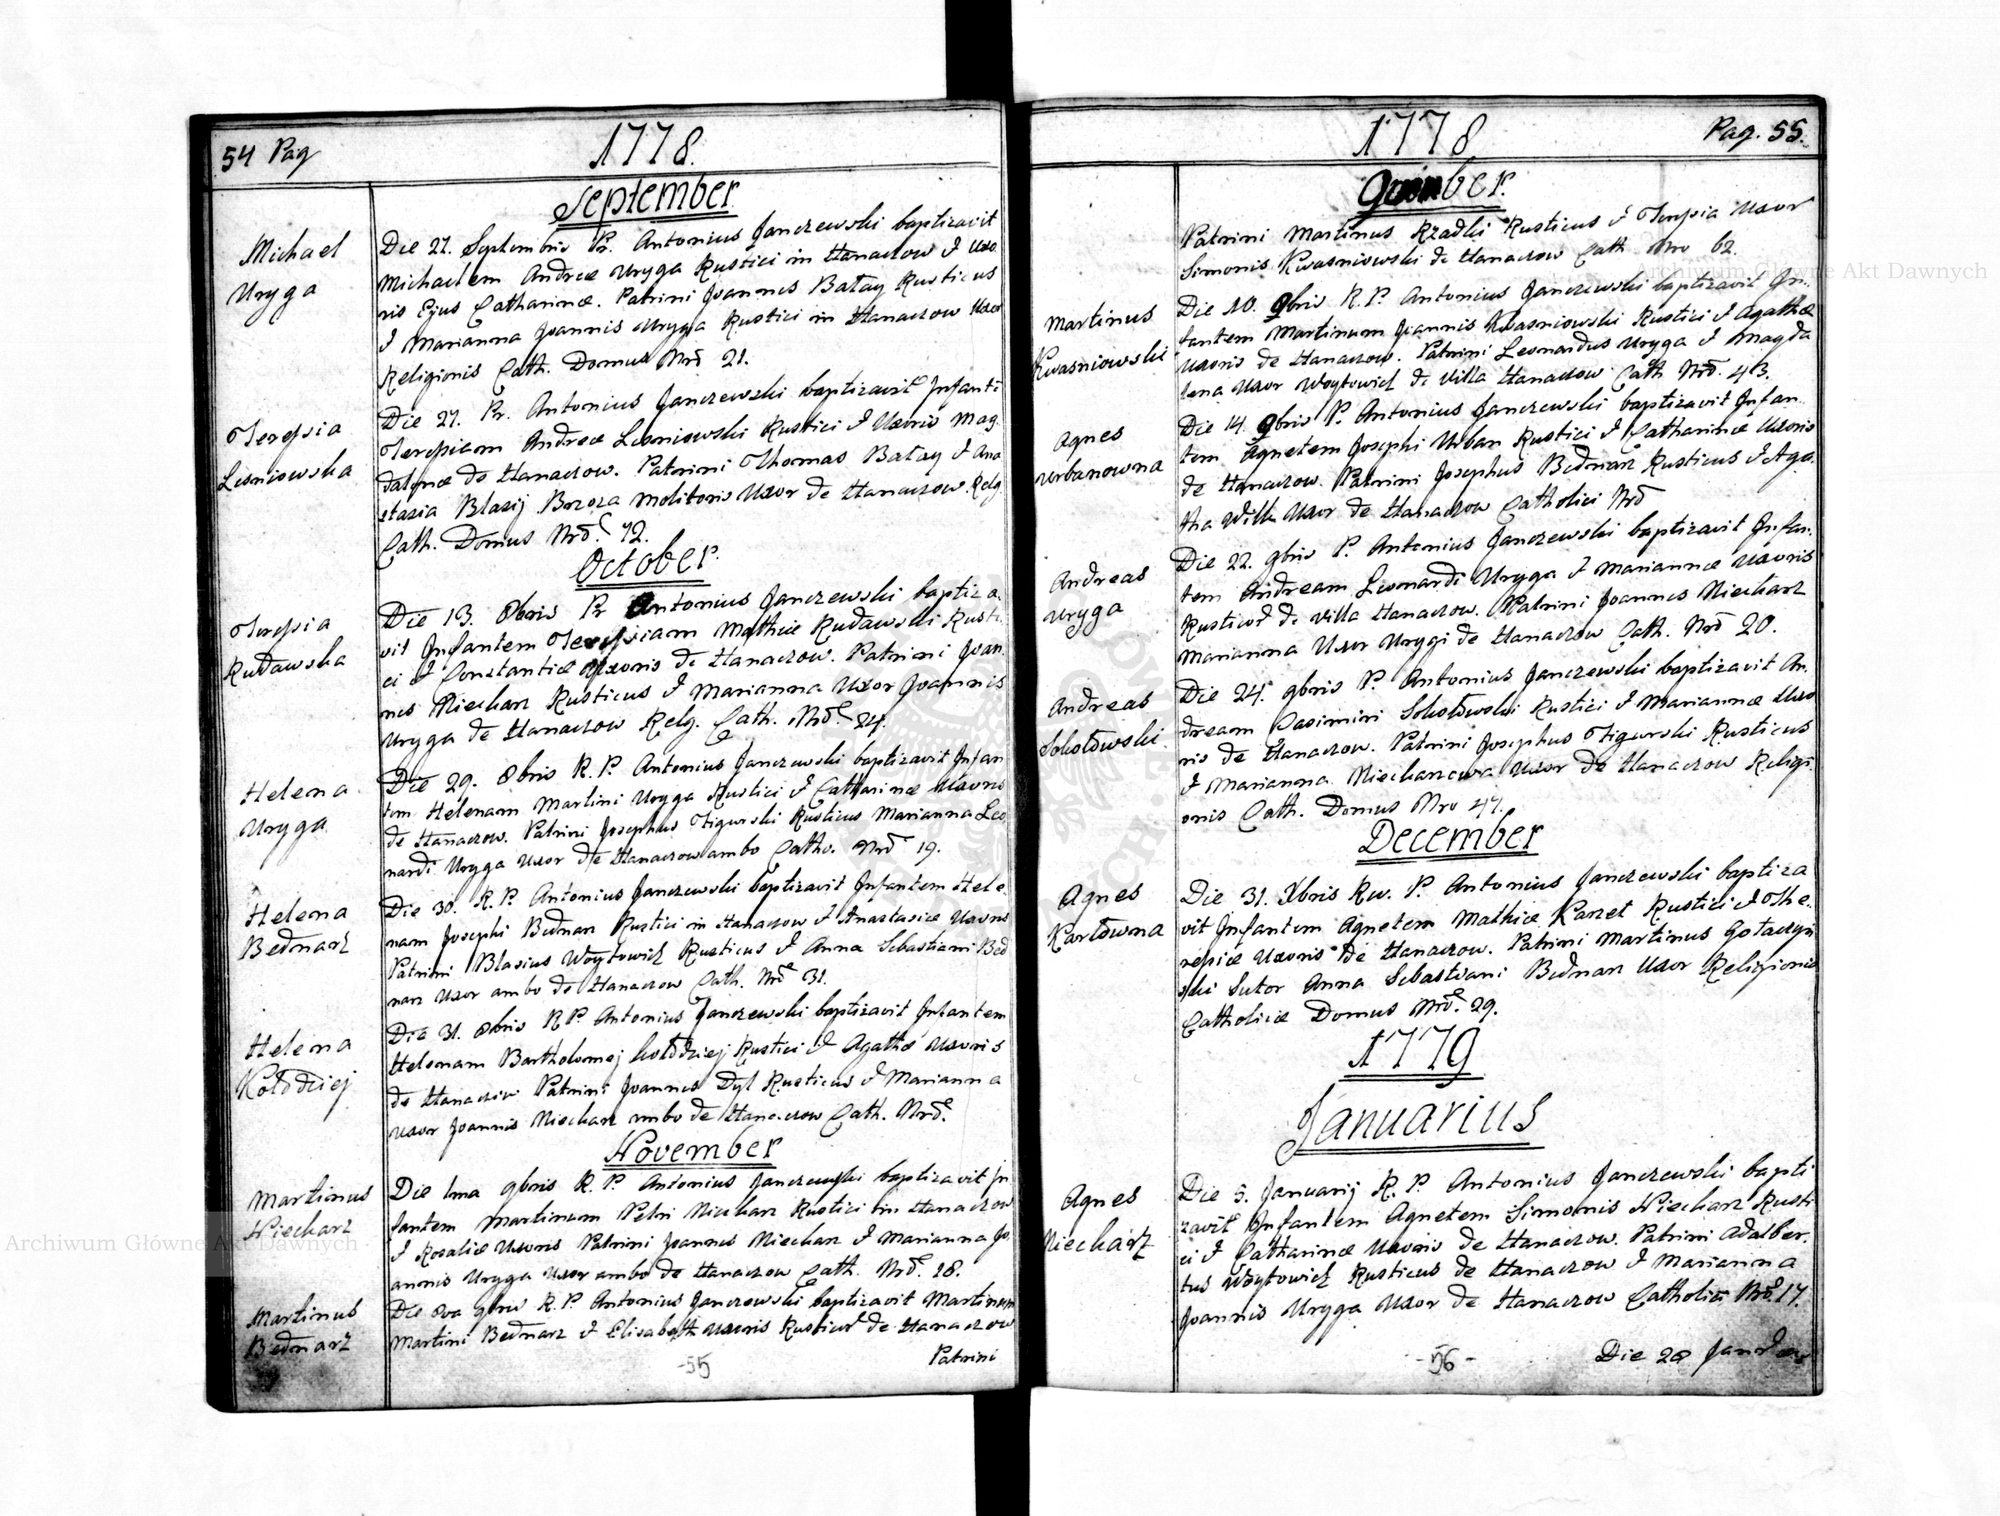 54 Pag
1778.
September
Michael
Uryga
Die 27. Septembris Pr. Antonius Janczewski baptizavit
Michaelem Andreæ Uryga Rustici in Hanaczow & Uxo
ris Ejus Catharinæ. Patrini Joannes Batay Rusticus
& Marianna Joannis Uryga Rustici in Hanaczow Uxor
Religionis Cath. Domus Nrõ 21.
Teresia
Lesniowska
Die 27. Pr. Antonius Janczewski baptizavit Infanti
Teresiam Andreæ Lesniowski Rustici & Uxoris Mag
dalenæ de Hanaczow. Patrini Thomas Batay & Ana
stazia Blasij Brzoza Molitoris Uxor de Hanaczow. Relg
Cath. Domus Nrõ. 72.
October.
Teresia
Rudawska
Die 13. 8bris Pr Antonius Janczewski baptiza.
vit Infantem Teresiam Mathiæ Rudawski Rusti
ci & Constantiæ Uxoris de Hanaczow. Patrini Joan
nes Niecharz Rusticus & Marianna Uxor Joannis
Uryga de Hanaczow Relg. Cath. Nrõ. 24.
Helena
Uryga
Die 29. 8bris R. P. Antonius Janczewski baptizavit Infan
tem Helenam Martini Uryga Rustici & Catharinæ Uxoris
de Hanaczow. Patrini Josephus Figurski Rusticus Marianna Leo
nardi Uryga Uxor de Hanaczow ambo Catho. Nrõ 19.
Helena
Bednarz
Die 30. R. P. Antonius Janczewski baptizavit Infantem Hele
nam Josephi Bednarz Rustici in Hanaczow & Anastasiæ Uxoris
Patrini Blasius Woytowicz Rusticus & Anna Sebastiani Bed
narz Uxor ambo de Hanaczow Cath. Nrõ 31.
Helena
Kołodziej
Die 31. 8bris R P. Antonius Janczewski baptizavit Infantem
Helenam Bartholomej Kołodziej Rustici & Agathæ Uxoris
de Hanaczow Patrini Joannes Dyl Rusticus & Marianna
Uxor Joannis Niecharz ambo de Hanaczow Cath. Nrõ.
November
Martinus
Niecharz
Die 1ma 9bris R. P. Antonius Janczewski baptizavit In
fantem Martinum Petri Niecharz Rustici in Hanaczow
& Rosaliæ Uxoris Patrini Joannes Niecharz & Marianna Jo
annis Uryga Uxor ambo de Hanaczow Cath. Nrõ. 28.
Martinus
Bednarz
Die 9bris R. P. Antonius Janczewski baptizavit Martinum
Martini Bednarz & Elisabeth Uxoris Rustici de Hanaczow
Patrini
-55
1778
Pag. 55.
9ber.
Patrini Martinus Rzadki Rusticus & Teresia Uxor
Simonis Kwasniowski de Hanaczow Cath Nro 62.
Martinus
Kwasniowski
Die 10. 9bris R. P. Antonius Janczewski baptizavit In.
fantem Martinum Joannis Kwasniowski Rustici & Agathæ
Uxoris de Hanaczow. Patrini Leonardus Uryga & Magda
lena Uxor Woytowicz de Villa Hanaczow Cath Nrõ. 43.
Agnes
Urbanowna
Die 14. 9bris P. Antonius Janczewski baptizavit Infan
tem Agnetem Josephi Urban Rustici & Catharinæ Uxoris
de Hanaczow. Patrini Josephus Bednarz Rusticus & Aga.
tha Wilk Uxor de Hanaczow Catholici Nrõ
Andreas
Uryga
Die 22. 9bris P. Antonius Janczewski baptizavit Infan.
tem Andream Leonardi Uryga & Mariannæ Uxoris
de Villa Hanaczow. Patrini Joannes Niecharz
Marianna Uxor Urygi de Hanaczow Cath. Nrõ 20.
Andreas
Sokołowski
Die 24. 9bris P. Antonius Janczewski baptizavit An.
dream Casimiri Sokołowski Rustici & Mariannæ Uxo
ris de Hanaczow. Patrini Josephus Figurski Rusticus
& Marianna Niecharzowa Uxor de Hanaczow Religi.
onis Cath. Domus Nro 47.
December
Agnes
Karlowna
Die 31. Xbris Rw. P. Antonius Janczewski baptiza
vit Infantem Agnetem Mathiæ Rustici & The.
resiæ Uxoris de Hanaczow. Patrini Martinus
ski Sutor Anna Sebastiani Bednarz Uxor Religionis
Catholicæ Domus Nrõ. 29.
1779
Januarius
Agnes
Niecharz
Die 5. Januarij R. P. Antonius Janczewski bapti
zavit Infantem Agnetem Simonis Niecharz Rusti
ci & Catharinæ Uxoris de Hanaczow. Patrini Adalber.
tus Woytowicz Rusticus de Hanaczow & Marianna
Joannis Uryga Uxor de Hanaczow Catholici Nrõ. 17.
Die 28
-56-
Archiwum Główne Akt Dawnych
Archiwum Główne Akt Dawnych